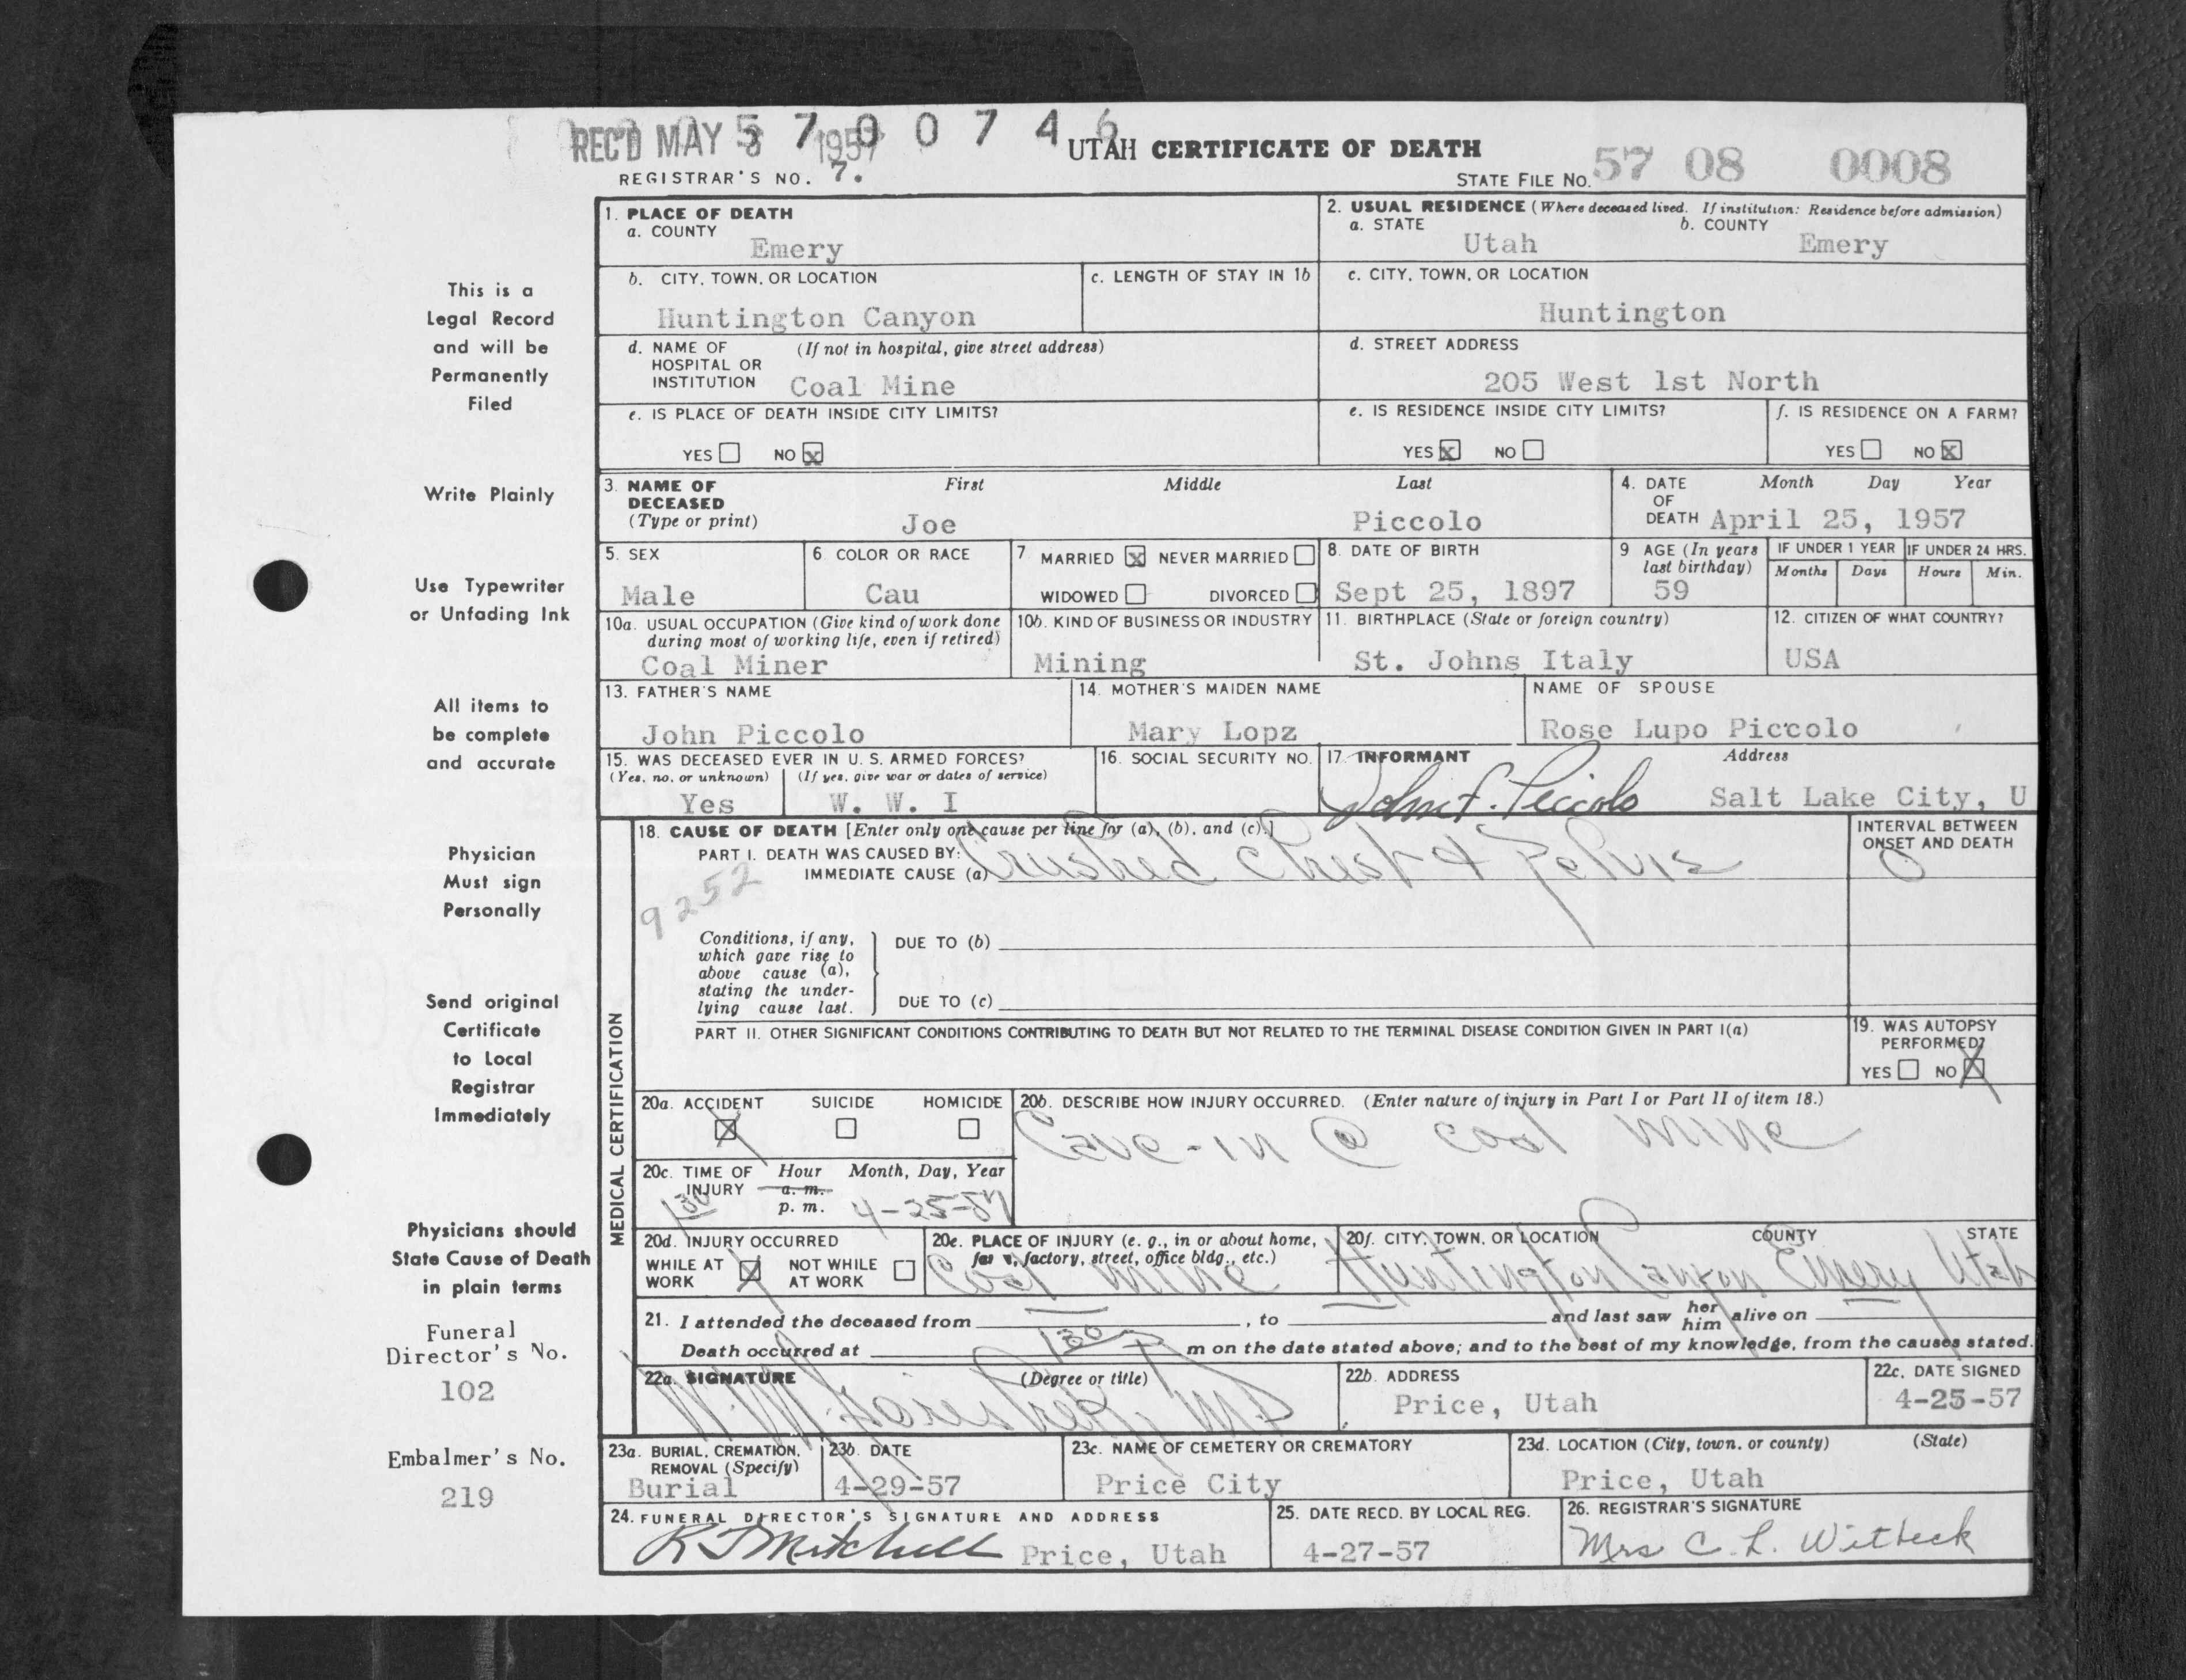 REC'D MAY 8 1957
5 7 0 0 7 4 6
UTAH CERTIFICATE OF DEATH
REGISTRAR'S NO. 7.
STATE FILE NO. 57 08 0008
1. PLACE OF DEATH
a. COUNTY
Emery
2. USUAL RESIDENCE (Where deceased lived. If institution: Residence before admission)
a. STATE b. COUNTY
Utah Emery
b. CITY, TOWN, OR LOCATION
Huntington Canyon
c. LENGTH OF STAY IN 1b
c. CITY, TOWN, OR LOCATION
Huntington
d. NAME OF (If not in hospital, give street address)
HOSPITAL OR
INSTITUTION Coal Mine
d. STREET ADDRESS
205 West 1st North
e. IS PLACE OF DEATH INSIDE CITY LIMITS?
YES NO X
e. IS RESIDENCE INSIDE CITY LIMITS?
YES X NO
f. IS RESIDENCE ON A FARM?
YES NO X
3. NAME OF First Middle Last
DECEASED
(Type or print) Joe Piccolo
4. DATE Month Day Year
OF
DEATH April 25, 1957
5. SEX
Male
6. COLOR OR RACE
Cau
7. MARRIED X NEVER MARRIED
WIDOWED DIVORCED
8. DATE OF BIRTH
Sept 25, 1897
9 AGE (In years
last birthday)
59
IF UNDER 1 YEAR IF UNDER 24 HRS.
Months Days Hours Min.
10a. USUAL OCCUPATION (Give kind of work done
during most of working life, even if retired)
Coal Miner
10b. KIND OF BUSINESS OR INDUSTRY
Mining
11. BIRTHPLACE (State or foreign country)
St. Johns Italy
12. CITIZEN OF WHAT COUNTRY?
USA
13. FATHER'S NAME
John Piccolo
14. MOTHER'S MAIDEN NAME
Mary Lopz
NAME OF SPOUSE
Rose Lupo Piccolo
15. WAS DECEASED EVER IN U. S. ARMED FORCES?
(Yes, no, or unknown) (If yes, give war or dates of service)
Yes W. W. I
16. SOCIAL SECURITY NO.
17. INFORMANT Address
John F. Piccolo Salt Lake City, U
MEDICAL CERTIFICATION
18. CAUSE OF DEATH [Enter only one cause per line for (a), (b), and (c).]
PART I. DEATH WAS CAUSED BY:
IMMEDIATE CAUSE (a) Crushed Chest & Pelvis
INTERVAL BETWEEN
ONSET AND DEATH
0
9252
Conditions, if any,
which gave rise to
above cause (a),
stating the under-
lying cause last.
DUE TO (b)
DUE TO (c)
PART II. OTHER SIGNIFICANT CONDITIONS CONTRIBUTING TO DEATH BUT NOT RELATED TO THE TERMINAL DISEASE CONDITION GIVEN IN PART I(a)
19. WAS AUTOPSY
PERFORMED?
YES NO X
20a. ACCIDENT SUICIDE HOMICIDE
X
20b. DESCRIBE HOW INJURY OCCURRED. (Enter nature of injury in Part I or Part II of item 18.)
Cave-in @ coal mine
20c. TIME OF Hour Month, Day, Year
INJURY a. m.
130 p. m. 4-25-57
20d. INJURY OCCURRED
WHILE AT X NOT WHILE
WORK AT WORK
20e. PLACE OF INJURY (e. g., in or about home,
farm, factory, street, office bldg., etc.)
Coal mine
20f. CITY, TOWN, OR LOCATION COUNTY STATE
Huntington Canyon Emery Utah
21. I attended the deceased from , to and last saw her him alive on
Death occurred at 130 P m on the date stated above; and to the best of my knowledge, from the causes stated.
22a. SIGNATURE (Degree or title)
MD
22b. ADDRESS
Price, Utah
22c. DATE SIGNED
4-25-57
23a. BURIAL, CREMATION,
REMOVAL (Specify)
Burial
23b. DATE
4-29-57
23c. NAME OF CEMETERY OR CREMATORY
Price City
23d. LOCATION (City, town, or county) (State)
Price, Utah
24. FUNERAL DIRECTOR'S SIGNATURE AND ADDRESS
R J Mitchell Price, Utah
25. DATE RECD. BY LOCAL REG.
4-27-57
26. REGISTRAR'S SIGNATURE
Mrs C. L. Witbeck
This is a
Legal Record
and will be
Permanently
Filed
Write Plainly
Use Typewriter
or Unfading Ink
All items to
be complete
and accurate
Physician
Must sign
Personally
Send original
Certificate
to Local
Registrar
Immediately
Physicians should
State Cause of Death
in plain terms
Funeral
Director's No.
102
Embalmer's No.
219